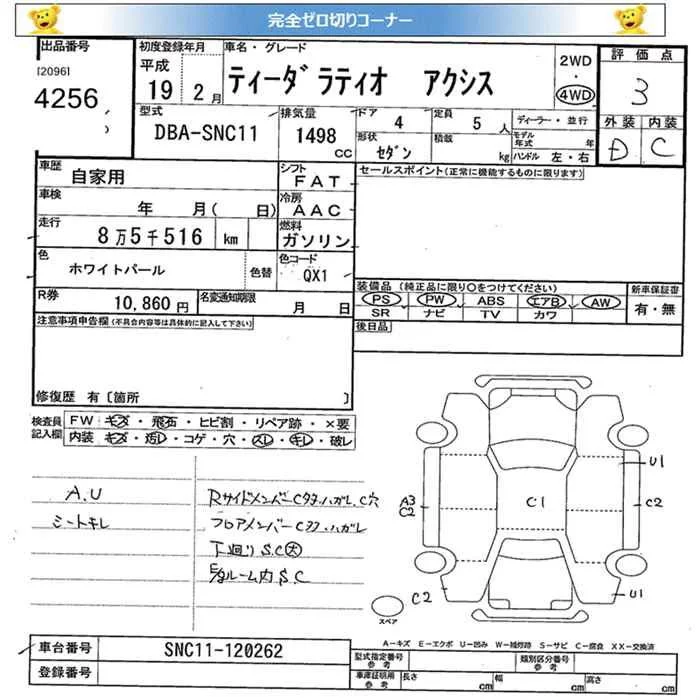 完全ゼロ切りコーナー
出品番号 初度登録年月 車名・グレード 2WD ・ 4WD 評価点
[2096] 平成 ティーダ ラティオ アクシス 3
4256 19 2月
型式 排気量 ドア 定員 ディーラー・並行 外装 内装
DBA-SNC11 1498 CC 4 5 人 モデル年式 年 D C
形状 積載
セダン kg ハンドル 左・右
車歴 自家用 シフト FAT セールスポイント(正常に機能するものに限ります)
車検 年 月( 日) 冷房 AAC
走行 8万5千516 km 燃料 ガソリン
色 ホワイトパール 色替 色コード QX1
装備品 (純正品に限り○をつけてください) 新車保証書
R券 10,860円 名変通知期限 月 日 PS PW ABS エアB AW 有・無
SR ナビ TV カワ
注意事項申告欄(不具合内容等は具体的に記入して下さい) 後日品
修復歴 有〔箇所 〕
検査員記入欄 FW キズ・飛石・ヒビ割・リペア跡・×要
内装 キズ・汚レ・コゲ・穴・スレ・キレ・破レ
A.U
シートキレ
RサイドメンバーCタヌ.ハガレ.C穴
フロアメンバーCヌ.ハガレ
下廻りS.C大
ルーム内S.C
U1
A3
C2
C1
C2
C2
U1
スペア
A-キズ E-エクボ U-凹み W-補修跡 S-サビ C-腐食 XX-交換済
車台番号 SNC11-120262 型式指定番号 参考 類別区分番号 参考
登録番号 車庫証明用 参考 長さ cm 幅 cm 高さ cm